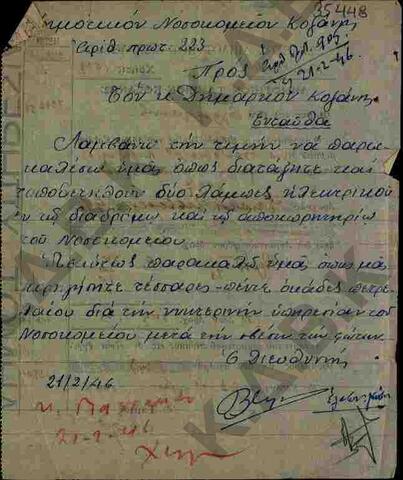 35448
Δημοτικόν Νοσοκομείον Κοζάνης
Αριθ. πρωτ. 223
Πρός
21-2-46
Τον κ. Δήμαρχον Κοζάνης
Ενταύθα
Λαμβάνω την τιμήν να παρα-
καλέσω υμάς όπως διατάξητε και
τοποθετηθούν δύο λάμπες ηλεκτρικού
εν τω διαδρόμω και της αποχωρητηρίω
του Νοσοκομείου.
παρακαλώ υμάς όπως μας
χορηγήσητε τέσσαρες-πέντε οκάδες πετρε-
λαίου διά την νυκτερινήν υπηρεσίαν του
Νοσοκομείου μετά την σβέσιν των φώτων.
Ο Διευθυντής
21/2/46
21-2-46